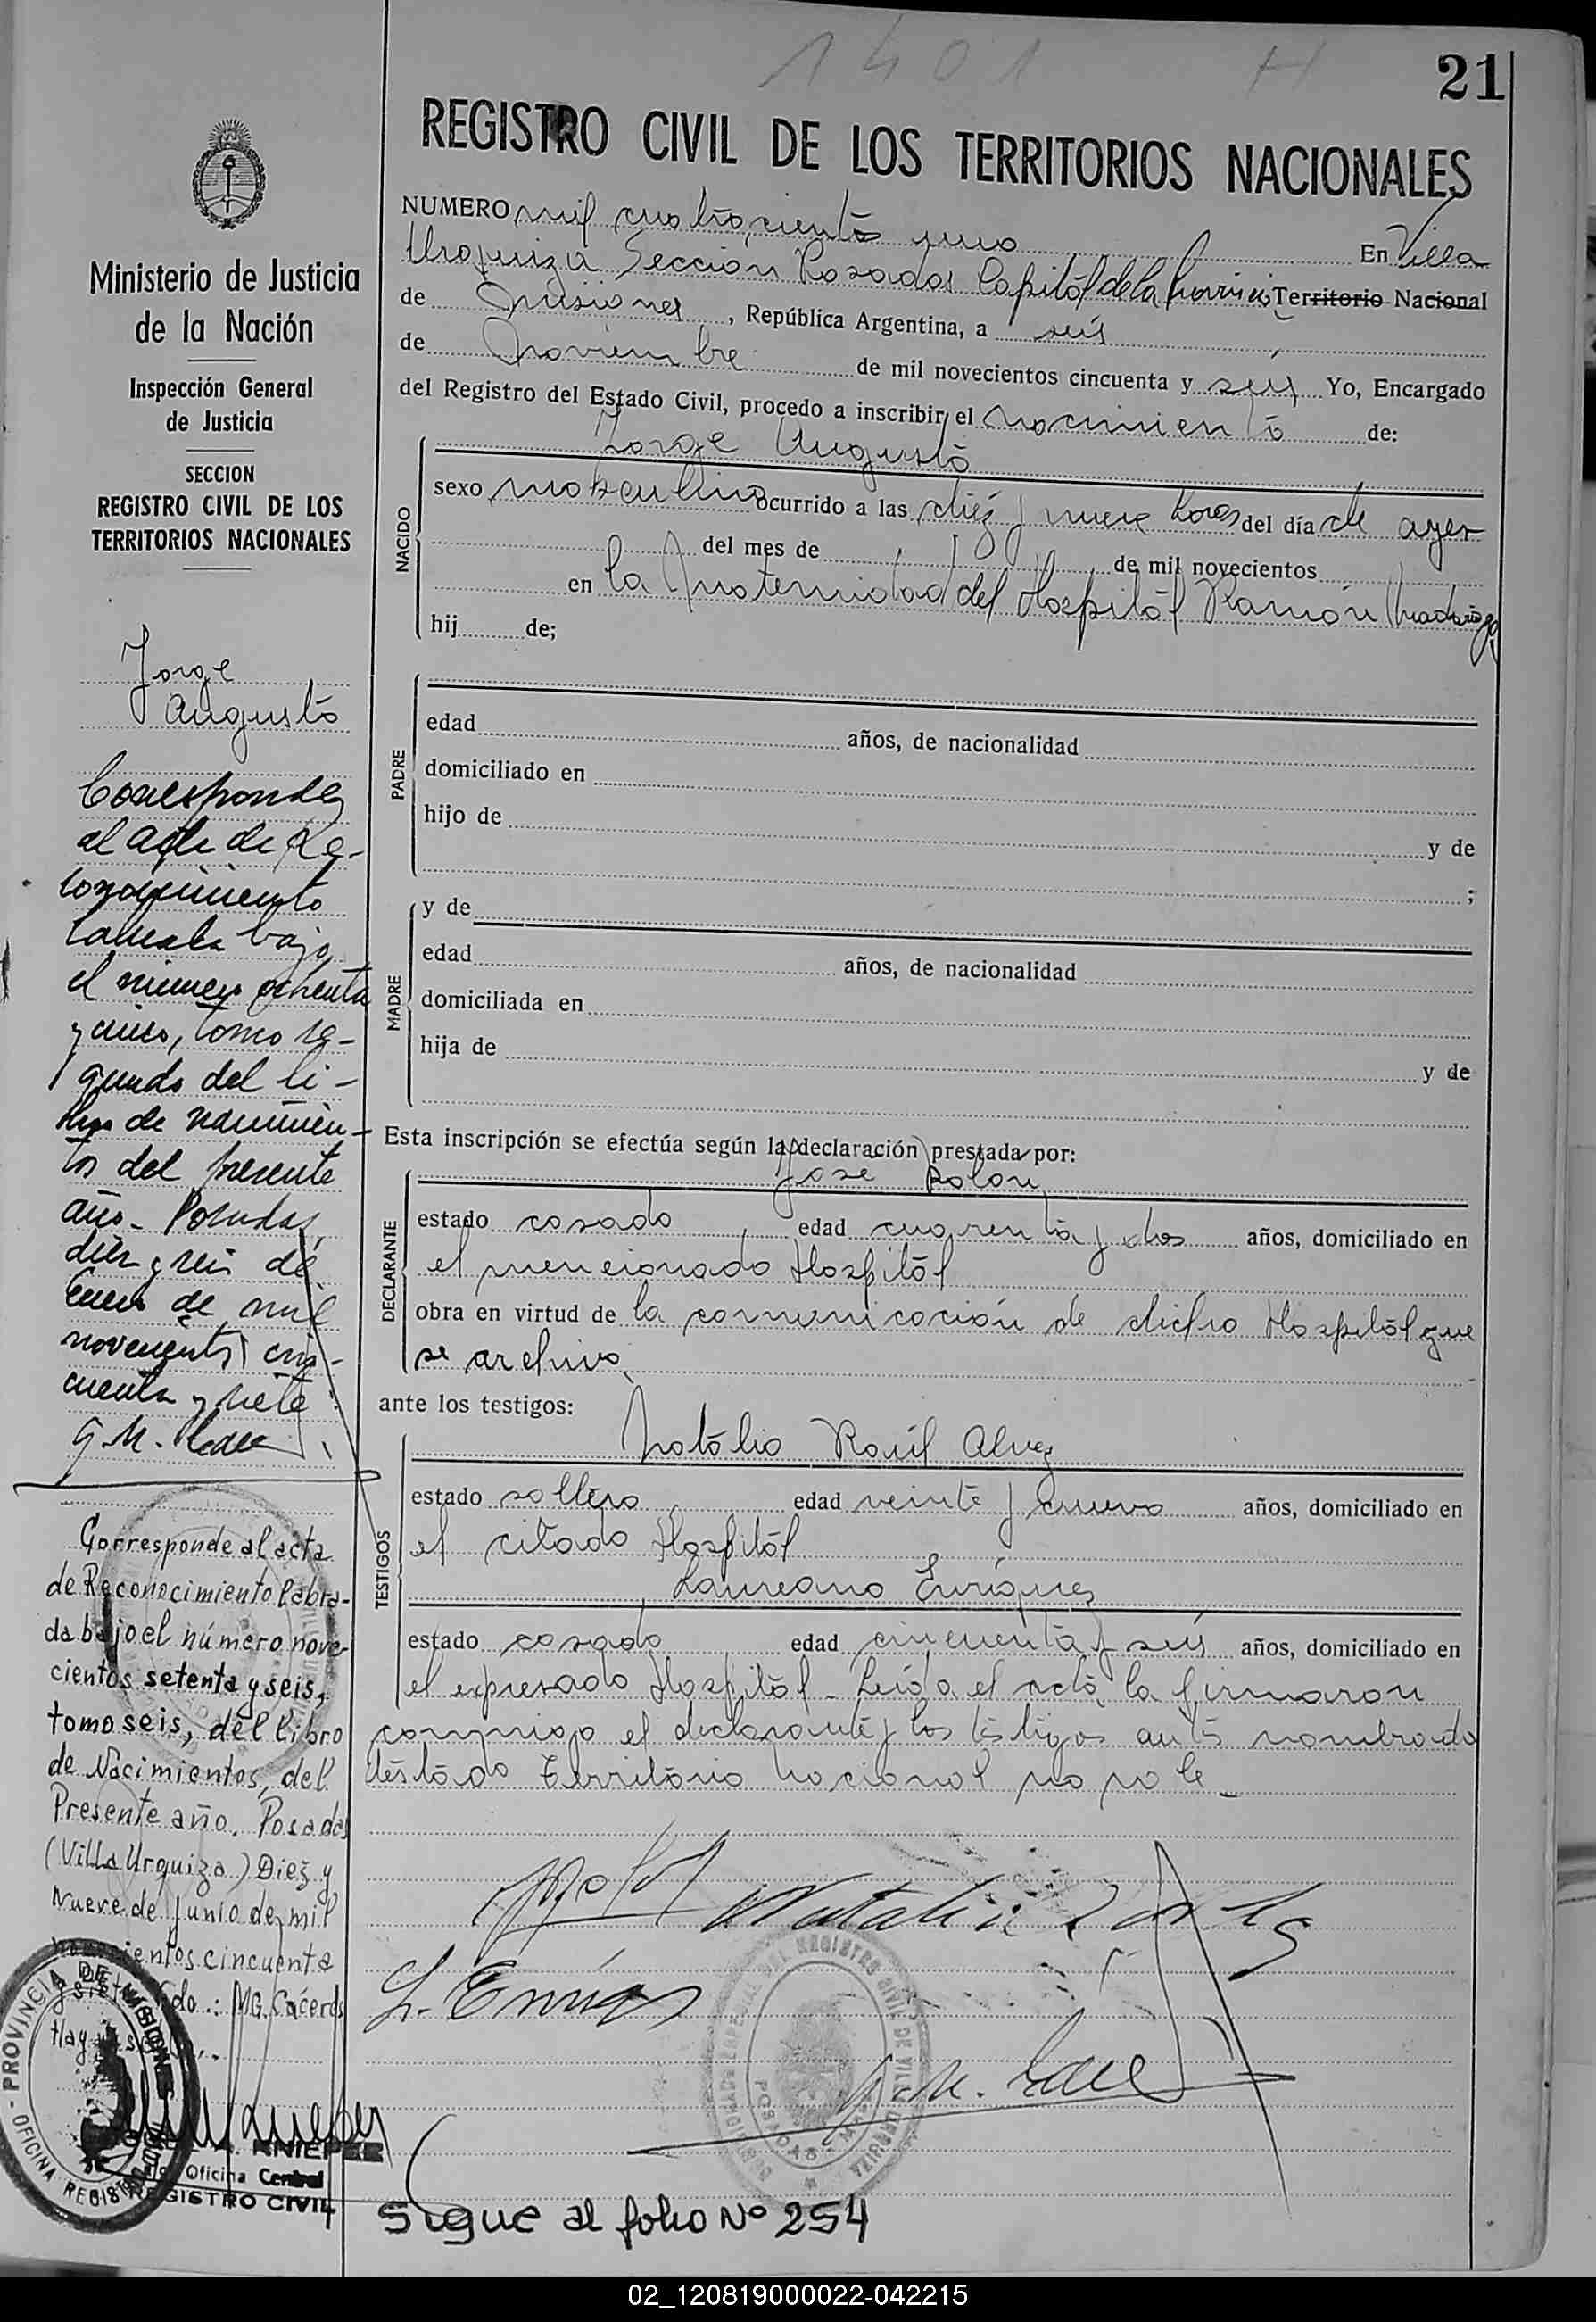 1401 H
21
REGISTRO CIVIL DE LOS TERRITORIOS NACIONALES
NUMERO mil cuatrocientos uno En Villa
Urquiza Sección Posadas Capital de la Provincia Territorio Nacional
de Misiones, República Argentina, a seis
de Noviembre de mil novecientos cincuenta y seis Yo, Encargado
del Registro del Estado Civil, procedo a inscribir el nacimiento de:
NACIDO
Jorge Augusto
sexo masculino ocurrido a las diez y nueve horas del día de ayer
del mes de de mil novecientos
en la Maternidad del Hospital Ramón Madariaga
hij de;
PADRE
edad años, de nacionalidad
domiciliado en
hijo de
y de
;
MADRE
y de
edad años, de nacionalidad
domiciliada en
hija de
y de
Esta inscripción se efectúa según la declaración prestada por:
DECLARANTE
José Rolon
estado casado edad cuarenta y dos años, domiciliado en
el mencionado Hospital
obra en virtud de la comunicación de dicho Hospital que
se archiva
ante los testigos:
TESTIGOS
Natalio Raúl Alvez
estado soltero edad veinte y nueve años, domiciliado en
el citado Hospital
Laureano Enriquez
estado casado edad cincuenta y seis años, domiciliado en
el expresado Hospital - Leída el acta, la firmaron
conmigo el declarante y los testigos antes nombrado
testado Territorio Nacional no vale_
L. Enriquez
G. M.
Sigue al folio Nº 254
Ministerio de Justicia
de la Nación
Inspección General
de Justicia
SECCION
REGISTRO CIVIL DE LOS
TERRITORIOS NACIONALES
Jorge
Augusto
Corresponde
al acta de Re-
conocimiento
labrada bajo
el número ochenta
y cinco, tomo se-
gundo del li-
bro de nacimien-
tos del presente
año - Posadas,
diez y seis de
Enero de mil
novecientos cin-
cuenta y siete.
G. M.
Corresponde al acta
de Reconocimiento labra-
da bajo el número nove-
cientos setenta y seis,
tomo seis, del libro
de Nacimientos, del
Presente año. Posadas
(Villa Urquiza) Diez y
Nueve de Junio de mil
novecientos cincuenta
y siete. Fdo.: MG. Caceres
Hay
PROVINCIA DE MISIONES
OFICINA
KNIEPER
Oficina Central
REGISTRO CIVIL
REGISTRO CIVIL DE VILLA URQUIZA
POSADAS
02_120819000022-042215